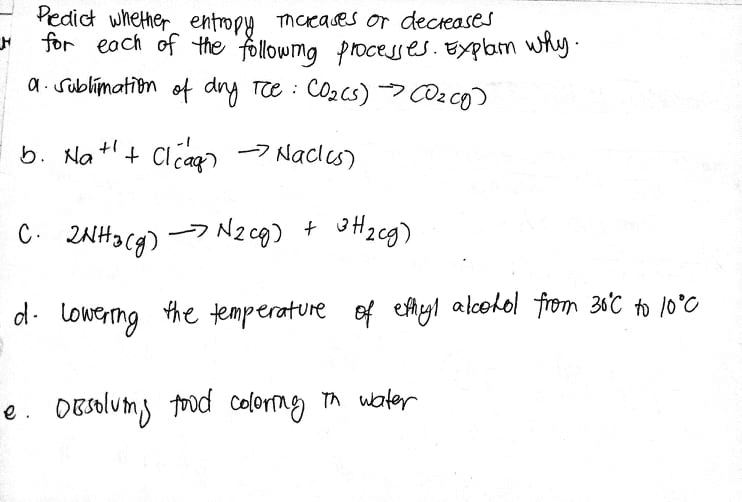 Predict whether entropy increases or decreases
for each of the following processes. Explain why.
a. Sublimation of dry Ice : CO2(s) → CO2(g)
b. Na+1 + Cl-1(aq) → NaCl(s)
C. 2NH3(g) → N2(g) + 3H2(g)
d. Lowering the temperature of ethyl alcohol from 30°C to 10°C
e. Dissolving food coloring in water